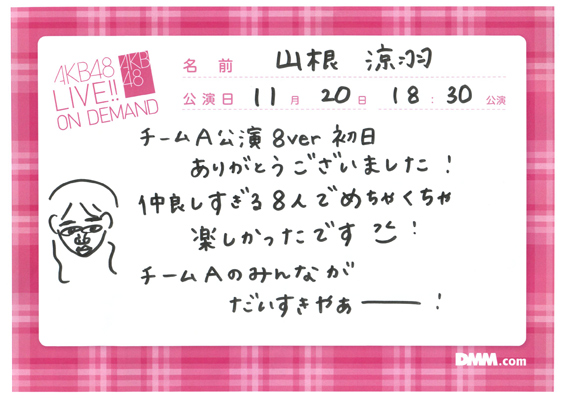 AKB48
LIVE!!
ON DEMAND
AKB
48
名前 山根 涼羽
公演日 11月 20日 18:30 公演
チームA公演 8ver 初日
ありがとうございました!
仲良しすぎる8人でめちゃくちゃ
楽しかったです!
チームAのみんなが
だいすきやぁー!
DMM.com